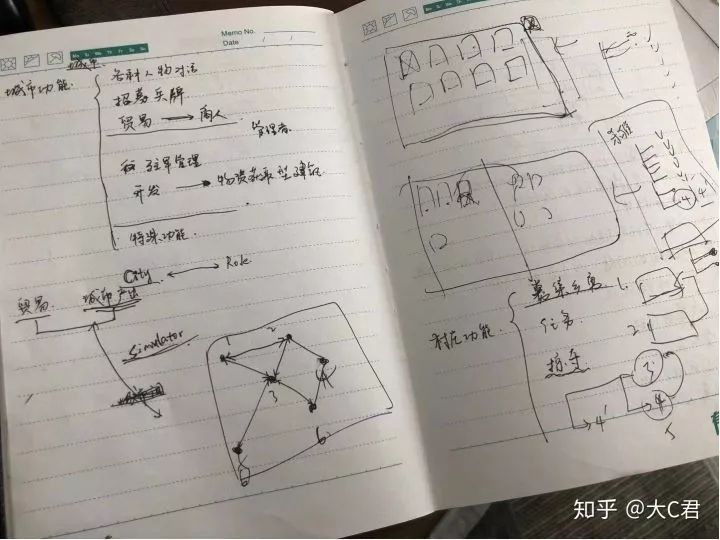 Memo No.
Date
城市功能
各种人物对话
招募兵牌
贸易 → 商人
管理者
驻军管理
开发 → 物资获取型建筑
特殊功能
City ↔ Role
贸易 城市产出
Simulator
1
2
3
6
村庄功能
募集
任务
1.
2.
3
4
4'
5
知乎 @大C君